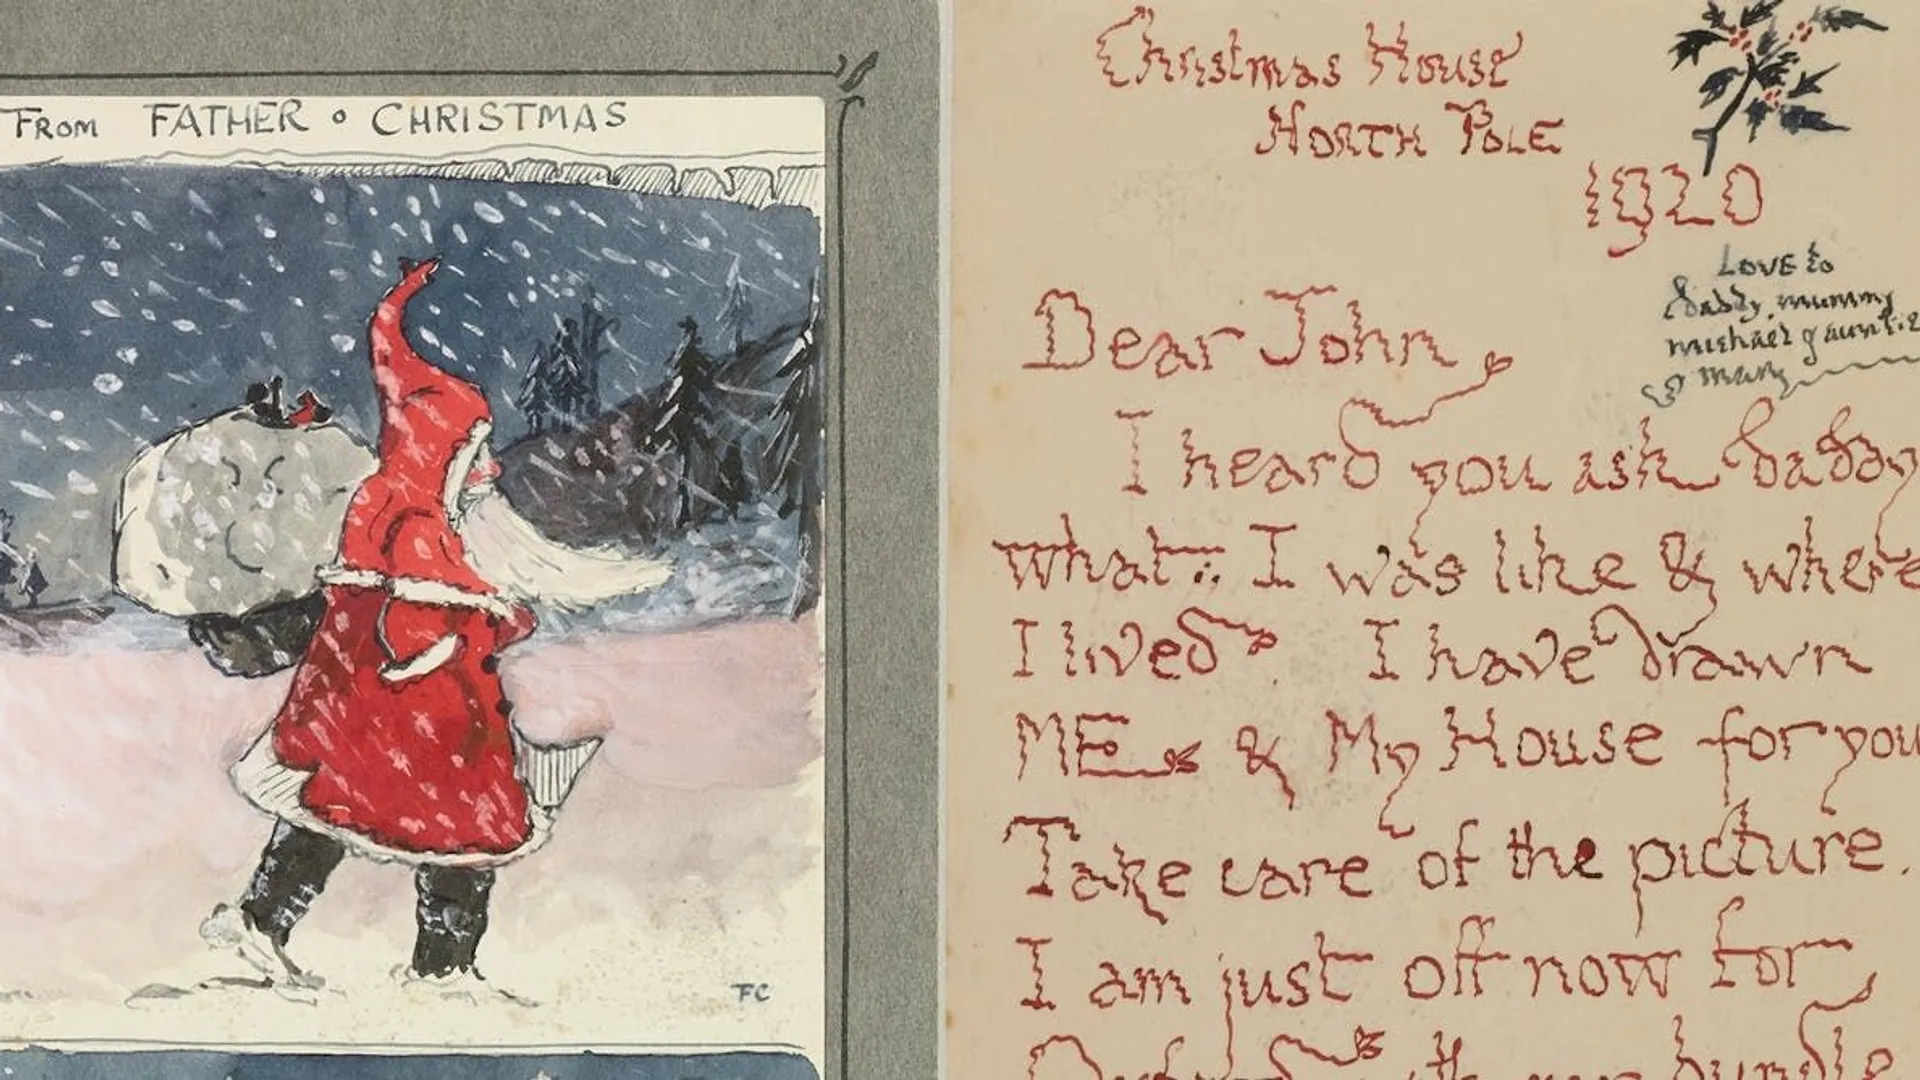 FROM FATHER CHRISTMAS
FC
Christmas House
NORTH POLE
1920
LOVE to
daddy, mummy
michael & auntie
mary
Dear John,
I heard you ask daddy
what I was like & where
I lived. I have drawn
ME & My House for you
Take care of the picture.
I am just off now for
Oxford with my bundle